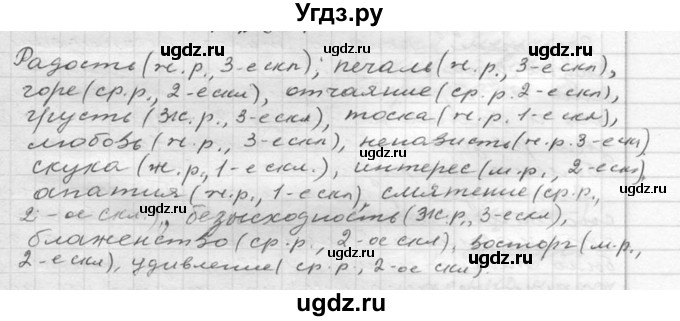 Угдз.ру
Радость (ж.р., 3-е скл), печаль (ж.р., 3-е скл),
горе (ср.р., 2-е скл), отчаяние (ср.р. 2-е скл),
грусть (ж.р., 3-е скл), тоска (ж.р. 1-е скл),
любовь (ж.р., 3-е скл), ненависть (ж.р. 3-е скл)
скука (ж.р., 1-е скл.), интерес (м.р., 2-е скл),
апатия (ж.р., 1-е скл), смятение (ср.р.,
2-ое скл.), безысходность (ж.р., 3-е скл),
блаженство (ср.р., 2-ое скл), восторг (м.р.,
2-е скл), удивление (ср.р., 2-ое скл).
ugdz.ru
ugdz.ru
ugdz.ru
ugdz.ru
ugdz.ru
ugdz.ru
ugdz.ru
ugdz.ru
ugdz.ru
ugdz.ru
ugdz.ru
ugdz.ru
ugdz.ru